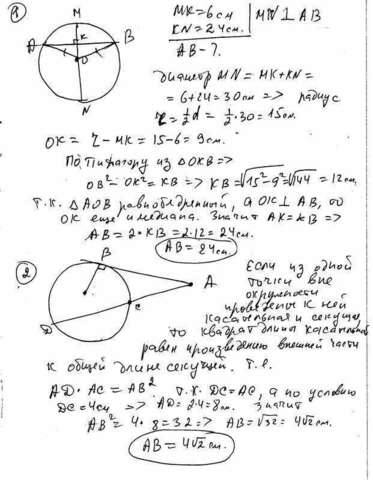 ①
M
MK = 6 см
KN = 24 см.
MN ⊥ AB
A
K
B
O
N
AB - ?
диаметр MN = MK + KN =
= 6 + 24 = 30 см => радиус
r = 1/2 d = 1/2 · 30 = 15 см.
OK = r - MK = 15 - 6 = 9 см.
По Пифагору из △OKB =>
OB² - OK² = KB => KB = √15² - 9² = √144 = 12 см.
Т.к. △AOB равнобедренный, а OK ⊥ AB, то
OK еще и медиана. Значит AK = KB =>
AB = 2 · KB = 2·12 = 24 см.
AB = 24 см.
②
B
A
C
D
Если из одной
точки вне
окружности
проведены к ней
касательная и секущая,
то квадрат длины касательной
равен произведению внешней части
к общей длине секущей. Т.е.
AD · AC = AB² т.к. DC = AC, а по условию
DC = 4 см => AD = 2·4 = 8 см. Значит
AB² = 4 · 8 = 32 => AB = √32 = 4√2 см.
AB = 4√2 см.